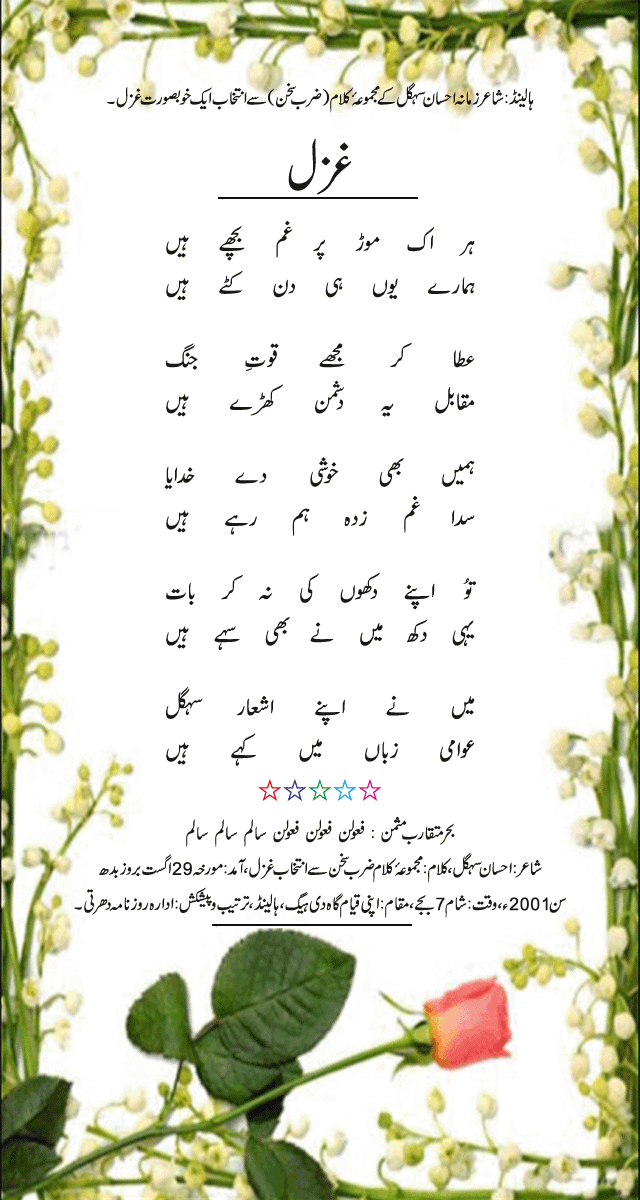 ہالینڈ: شاعر زمانہ احسان سہگل کے مجموعۂ کلام (ضرب سخن) سے انتخاب ایک خوبصورت غزل۔
غزل
ہر اک موڑ پر غم بچھے ہیں
ہمارے یوں ہی دن کٹے ہیں
عطا کر مجھے قوتِ جنگ
مقابل یہ دشمن کھڑے ہیں
ہمیں بھی خوشی دے خدایا
سدا غم زدہ ہم رہے ہیں
تُو اپنے دکھوں کی نہ کر بات
یہی دکھ میں نے بھی سہے ہیں
میں نے اپنے اشعار سہگل
عوامی زباں میں کہے ہیں
بحر متقارب مثمن : فعولن فعولن فعولن سالم سالم سالم
شاعر: احسان سہگل، کلام: مجموعۂ کلام ضرب سخن سے انتخاب غزل، آمد: مورخہ 29 اگست بروز بدھ
سن 2001ء، وقت: شام 7 بجے، مقام: اپنی قیام گاہ دی ہیگ، ہالینڈ، ترتیب و پیشکش: ادارہ روزنامہ دھرتی۔